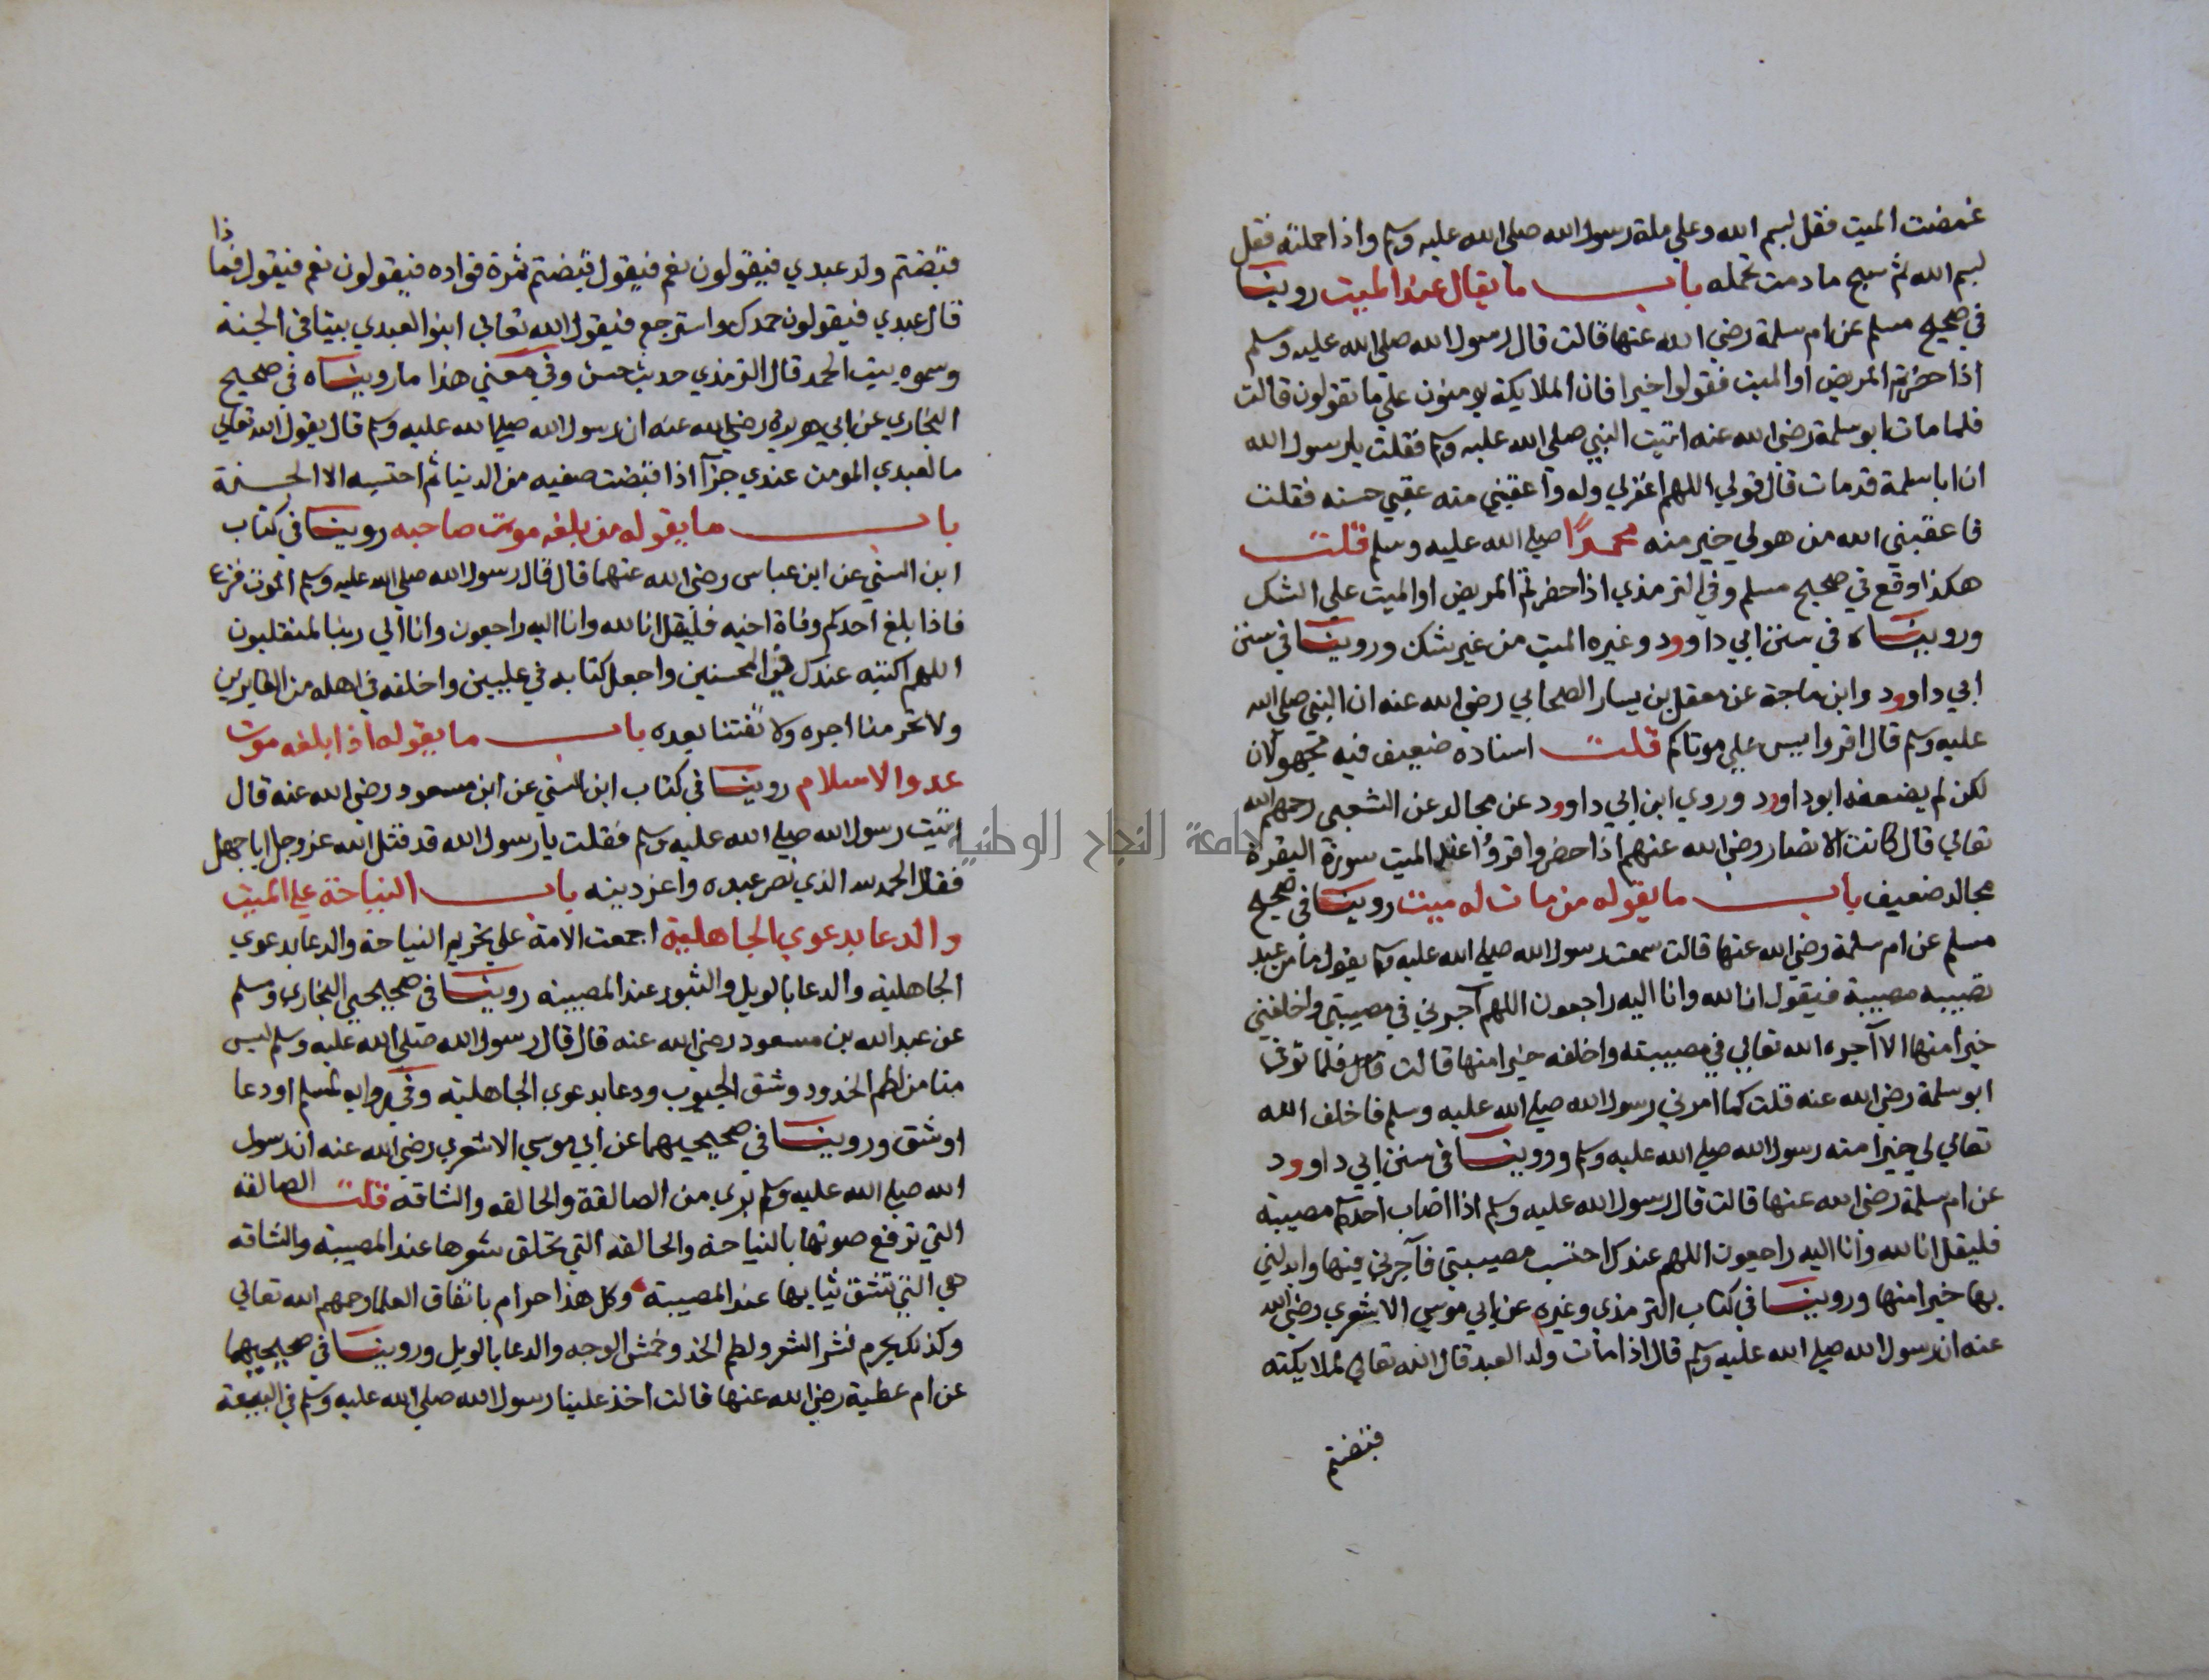 غمضت الميت فقل بسم الله وعلي ملة رسول الله صلي الله عليه وسلم واذا حملته فقل
بسم الله ثم سبح ما دمت تحمله باب ما يقال عند الميت روينا
في صحيح مسلم عن ام سلمة رضي الله عنها قالت قال رسول الله صلي الله عليه وسلم
اذا حضرتم المريض او الميت فقولوا خيرا فان الملايكة يومنون علي ما تقولون قالت
فلما مات ابو سلمة رضي الله عنه اتيت النبي صلي الله عليه وسلم فقلت يا رسول الله
ان ابا سلمة قد مات قال قولي اللهم اغفر لي وله واعقبني منه عقبي حسنه فقلت
فاعقبني الله من هو لي خير منه محمدًا صلي الله عليه وسلم قلت
هكذا وقع في صحيح مسلم وفي الترمذي اذا حضرتم المريض او الميت علي الشك
ورويناه في سنن ابي داوود وغيره الميت من غير شك وروينا في سنن
ابي داوود وابن ماجة عن معقل بن يسار الصحابي رضي الله عنه ان النبي صلي الله
عليه وسلم قال اقروا يس علي موتاكم قلت اسناده ضعيف فيه مجهولان
لكن لم يضعفه ابو داوود وروي ابن ابي داوود عن مجالد عن الشعبي رحمهم الله
تعالي قال كانت الانصار رضي الله عنهم اذا حضروا قرؤا عند الميت سورة البقرة
مجالد ضعيف باب ما يقوله من مات له ميت روينا في صحيح
مسلم عن ام سلمة رضي الله عنها قالت سمعت رسول الله صلي الله عليه وسلم يقول ما من عبد
تصيبه مصيبة فيقول انا لله وانا اليه راجعون اللهم آجرني في مصيبتي واخلفني
خيرا منها الا آجره الله تعالي في مصيبته واخلفه خيرا منها قالت فلما توفي
ابو سلمة رضي الله عنه قلت كما امرني رسول الله صلي الله عليه وسلم فاخلف الله
تعالي لي خيرا منه رسول الله صلي الله عليه وسلم وروينا في سنن ابي داوود
عن ام سلمة رضي الله عنها قالت قال رسول الله عليه وسلم اذا اصاب احدكم مصيبة
فليقل انا لله وانا اليه راجعون اللهم عندك احتسب مصيبتي فآجرني فيها وابدلني
بها خيرا منها وروينا في كتاب الترمذي وغيره عن ابي موسي الاشعري رضي الله
عنه ان رسول الله صلي الله عليه وسلم قال اذا مات ولد العبد قال الله تعالي لملايكته
قبضتم
ذا
قبضتم ولد عبدي فيقولون نعم فيقول قبضتم ثمرة فواده فيقولون نعم فيقول فما
قال عبدي فيقولون حمدك واسترجع فيقول الله تعالي ابنوا لعبدي بيتا في الجنة
وسموه بيت الحمد قال الترمذي حديث حسن وفي معني هذا ما رويناه في صحيح
البخاري عن ابي هريرة رضي الله عنه ان رسول الله صلي الله عليه وسلم قال يقول الله تعالي
ما لعبدي المومن عندي جزآ اذا قبضت صفيه من الدنيا ثم احتسبه الا الحسنة
باب ما يقوله من بلغه موت صاحبه روينا في كتاب
ابن السني عن ابن عباس رضي الله عنهما قال قال رسول الله صلي الله عليه وسلم الموت فزع
فاذا بلغ احدكم وفاة اخيه فليقل انا لله وانا اليه راجعون وانا الي ربنا لمنقلبون
اللهم اكتبه عندك في المحسنين واجعل كتابه في عليين واخلفه في اهله من الغابرين
ولا تحرمنا اجره ولا تفتنا بعده باب ما يقوله اذا بلغه موت
عدو الاسلام روينا في كتاب ابن السني عن ابن مسعود رضي الله عنه قال
اتيت رسول الله صلي الله عليه وسلم فقلت يا رسول الله قد قتل الله عز وجل ابا جهل
فقال الحمد لله الذي نصر عبده واعز دينه باب النياحة علي الميت
والدعا بدعوي الجاهلية اجمعت الامة علي تحريم النياحة والدعا بدعوي
الجاهلية والدعا بالويل والثبور عند المصيبة روينا في صحيحي البخاري ومسلم
عن عبد الله بن مسعود رضي الله عنه قال قال رسول الله صلي الله عليه وسلم ليس
منا من لطم الخدود وشق الجيوب ودعا بدعوي الجاهلية وفي رواية لمسلم او دعا
او شق وروينا في صحيحيهما عن ابي موسي الاشعري رضي الله عنه ان رسول
الله صلي الله عليه وسلم بري من الصالقة والحالقه والشاقه قلت الصالقه
التي ترفع صوتها بالنياحة والحالقه التي تحلق شعرها عند المصيبة والشاقه
هي التي تشق ثيابها عند المصيبة وكل هذا حرام باتفاق العلما رحمهم الله تعالي
وكذلك يحرم نشر الشعر ولطم الخد وخمش الوجه والدعا بالويل وروينا في صحيحيهما
عن ام عطية رضي الله عنها قالت اخذ علينا رسول الله صلي الله عليه وسلم في البيعة
جامعة النجاح الوطنية